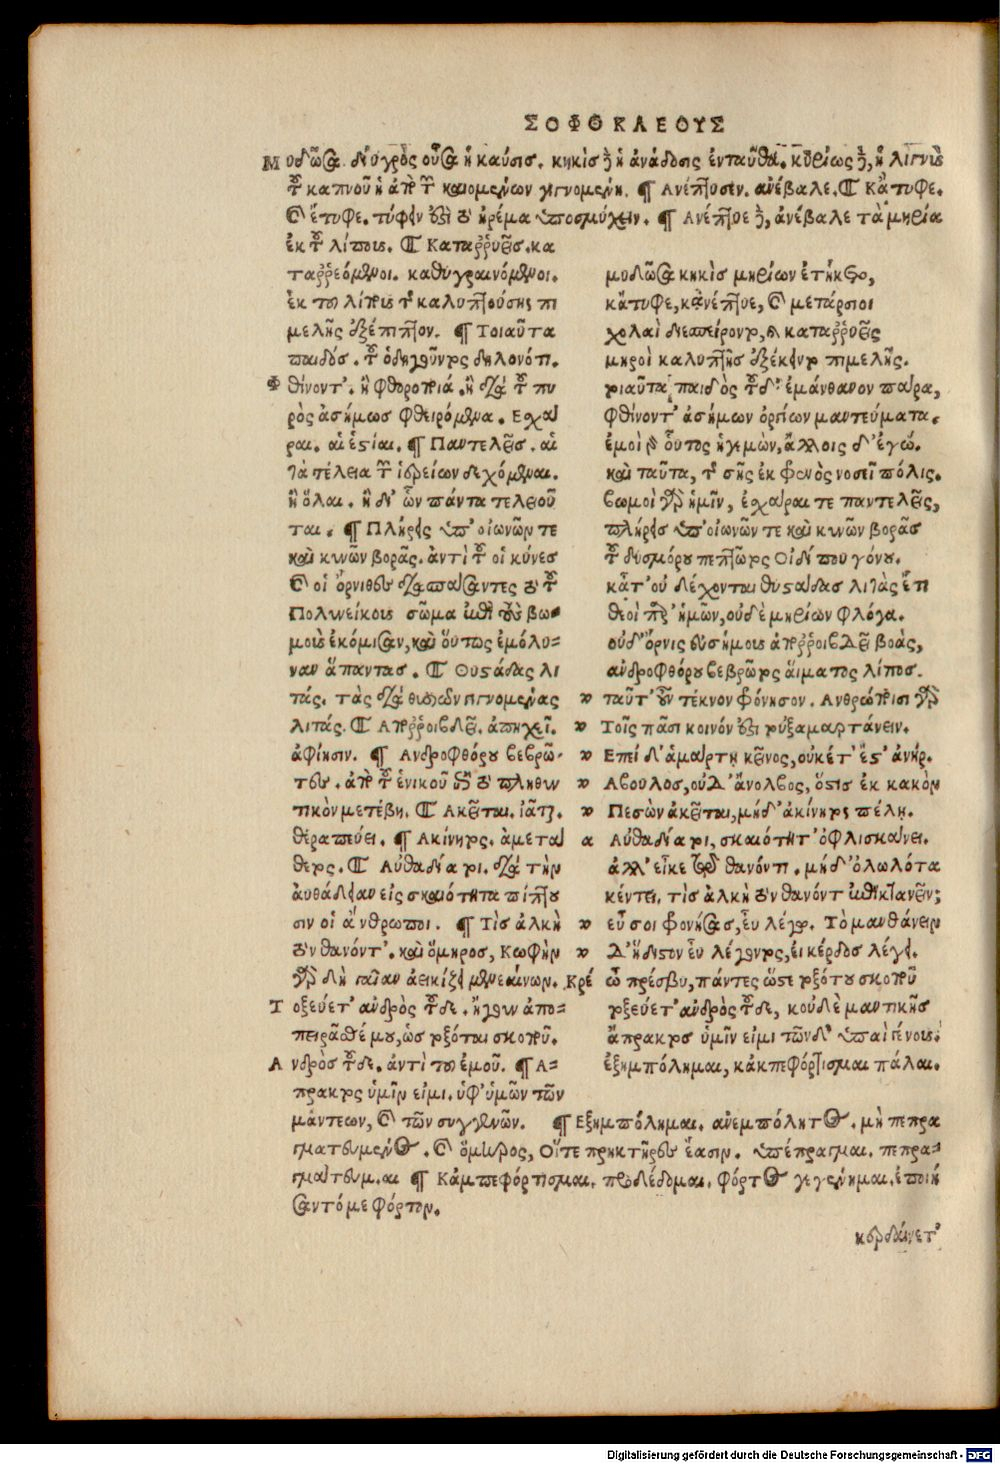 ΣΟΦΟΚΛΕΟΥΣ
Μυδῶσα. δίυγρὸς οὖσα ἡ καῦσις. κηκὶς δὲ ἡ ἀνάδοσις ἐνταῦθα. κυρίως δὲ, ἡ λιγνὺς
τοῦ καπνοῦ ἡ ἀπὸ τῶν καιομένων γιγνομένη. ¶ Ανέπτυσεν. ἀνέβαλε. ¶ Κἄτυφε.
καὶ ἔτυφε. τύφειν ἐστὶ τὸ ἠρέμα ὑποσμύχειν. ¶ Ανέπτυε δὲ, ἀνέβαλε τὰ μηρία
ἐκ τοῦ λίπους. ¶ Καταῤῥυεῖς. κα
ταῤῥεόμενοι. καθυγραινόμενοι.
ἐκ τοῦ λίπους τῆς καλυπτούσης πι
μελῆς ἐξέπιπτον. ¶ Τοιαῦτα
παιδός. τοῦ ὁδηγοῦντος δηλονότι.
Φθίνοντ'. ἢ φθοροποιά. ἢ διὰ τοῦ πυ
ρὸς ἀσήμως φθειρόμενα. Εσχάρ
ραι. αἱ ἑστίαι. ¶ Παντελεῖς. αἱ
τὰ τέλεια τῶν ἱερείων δεχόμεναι.
ἢ ὅλαι. ἢ δι' ὧν πάντα τελεοῦ
ται. ¶ Πλήρεις ὑπ' οἰωνῶν τε
καὶ κυνῶν βορᾶς. ἀντὶ τοῦ οἱ κύνες
καὶ οἱ ὄρνιθες διασπάσαντες τὸ τοῦ
Πολυνείκους σῶμα ἐπὶ τοὺς βω-
μοὺς ἐκόμισαν, καὶ οὕτως ἐμόλυ-
ναν ἅπαντας. ¶ Θυστάδας λι
τάς. τὰς διὰ θυσιῶν γιγνομένας
λιτάς. ¶ Απῤῥοιβδεῖ. ἀπηχεῖ.
ἀφίησιν. ¶ Ανδροφθόρου βεβρῶ-
τες. ἀπὸ τοῦ ἑνικοῦ ἐπὶ τὸ πληθυν
τικὸν μετέβη. ¶ Ακεῖται. ἰᾶται.
θεραπεύει. ¶ Ακίνητος. ἀμετά
θετος. ¶ Αὐθαδία τοι. διὰ τὴν
αὐθάδειαν εἰς σκαιότητα πίπτου
σιν οἱ ἄνθρωποι. ¶ Τὶς ἀλκὴ
τὸν θανόντ'. καὶ ὅμηρος, Κωφὴν
γὰρ δὴ γαῖαν ἀεικίζει μενεαίνων.
Τοξεύετ' ἀνδρὸς τοῦδε. ἤγουν ἀπο-
πειρᾶσθέ μου, ὡς τοξόται σκοποῦ.
Ανδρὸς τοῦδε. ἀντὶ τοῦ ἐμοῦ. ¶ Α-
πρακτος ὑμῖν εἰμι. ὑφ' ὑμῶν τῶν
μάντεων, καὶ τῶν συγγενῶν. ¶ Εξημπόλημαι. ἀνεμπόλητος. μὴ πεπρα
γματευμένος. καὶ ὅμηρος, Οἵτε πρηκτῆρες ἔασιν. ὑπέπραγμαι. πεπρα-
γμάτευμαι ¶ Κἀμπεφόρτισμαι. προδέδομαι. φόρτος γεγένημαι. ἐποιή
σαντό με φόρτον.
μυδῶσα κηκὶς μηρίων ἐτήκετο,
κἄτυφε, κἀνέπτυε, καὶ μετάρσιοι
χολαὶ διεσπείροντο, καὶ καταῤῥυεῖς
μηροὶ καλυπτῆς ἐξέκειντο πιμελῆς.
τοιαῦτα παιδὸς τοῦδ' ἐμάνθανον πάρα,
φθίνοντ' ἀσήμων ὀργίων μαντεύματα.
ἐμοὶ γὰρ οὗτος ἡγεμὼν, ἄλλοις δ' ἐγώ.
καὶ ταῦτα, τῆς σῆς ἐκ φρενὸς νοσεῖ πόλις.
βωμοὶ γὰρ ἡμῖν, ἐσχάραι τε παντελεῖς,
πλήρεις ὑπ' οἰωνῶν τε καὶ κυνῶν βορᾶς
τοῦ δυσμόρου πεπτῶτος Οἰδίπου γόνου.
κᾆτ' οὐ δέχονται θυστάδας λιτὰς ἔτι
θεοὶ παρ' ἡμῶν, οὐδὲ μηρίων φλόγα.
οὐδ' ὄρνις εὐσήμους ἀποῤῥοιβδεῖ βοὰς,
ἀνδροφθόρου βεβρῶτος αἵματος λίπος.
ταῦτ' οὖν τέκνον φρόνησον. Ανθρώποισι γὰρ
Τοῖς πᾶσι κοινόν ἐστι τοὐξαμαρτάνειν.
Επεὶ δ' ἁμάρτῃ κεῖνος, οὐκέτ' ἔστ' ἀνήρ.
Αβουλος, οὐδ' ἄνολβος, ὅστις ἐκ κακὸν
Πεσὼν ἀκεῖται, μηδ' ἀκίνητος πέλῃ.
Αὐθαδία τοι, σκαιότητ' ὀφλισκάνει.
ἀλλ' εἶκε τῷ θανόντι. μηδ' ὀλωλότα
κέντει. τίς ἀλκὴ τὸν θανόντ' ἐπικτανεῖν;
εὖ σοι φρονήσας, εὖ λέγω. Τὸ μανθάνειν
Δ' ἥδιστον εὖ λέγοντος, εἰ κέρδος λέγει.
Κρέ ὦ πρέσβυ, πάντες ὥστε τοξόται σκοποῦ
τοξεύετ' ἀνδρὸς τοῦδε, κοὐδὲ μαντικῆς
ἄπρακτος ὑμῖν εἰμι τῶνδ' ὑπαὶ γένους.
ἐξημπόλημαι, κἀκπεφόρτισμαι πάλαι.
κερδαίνετ'
Digitalisierung gefördert durch die Deutsche Forschungsgemeinschaft - DFG